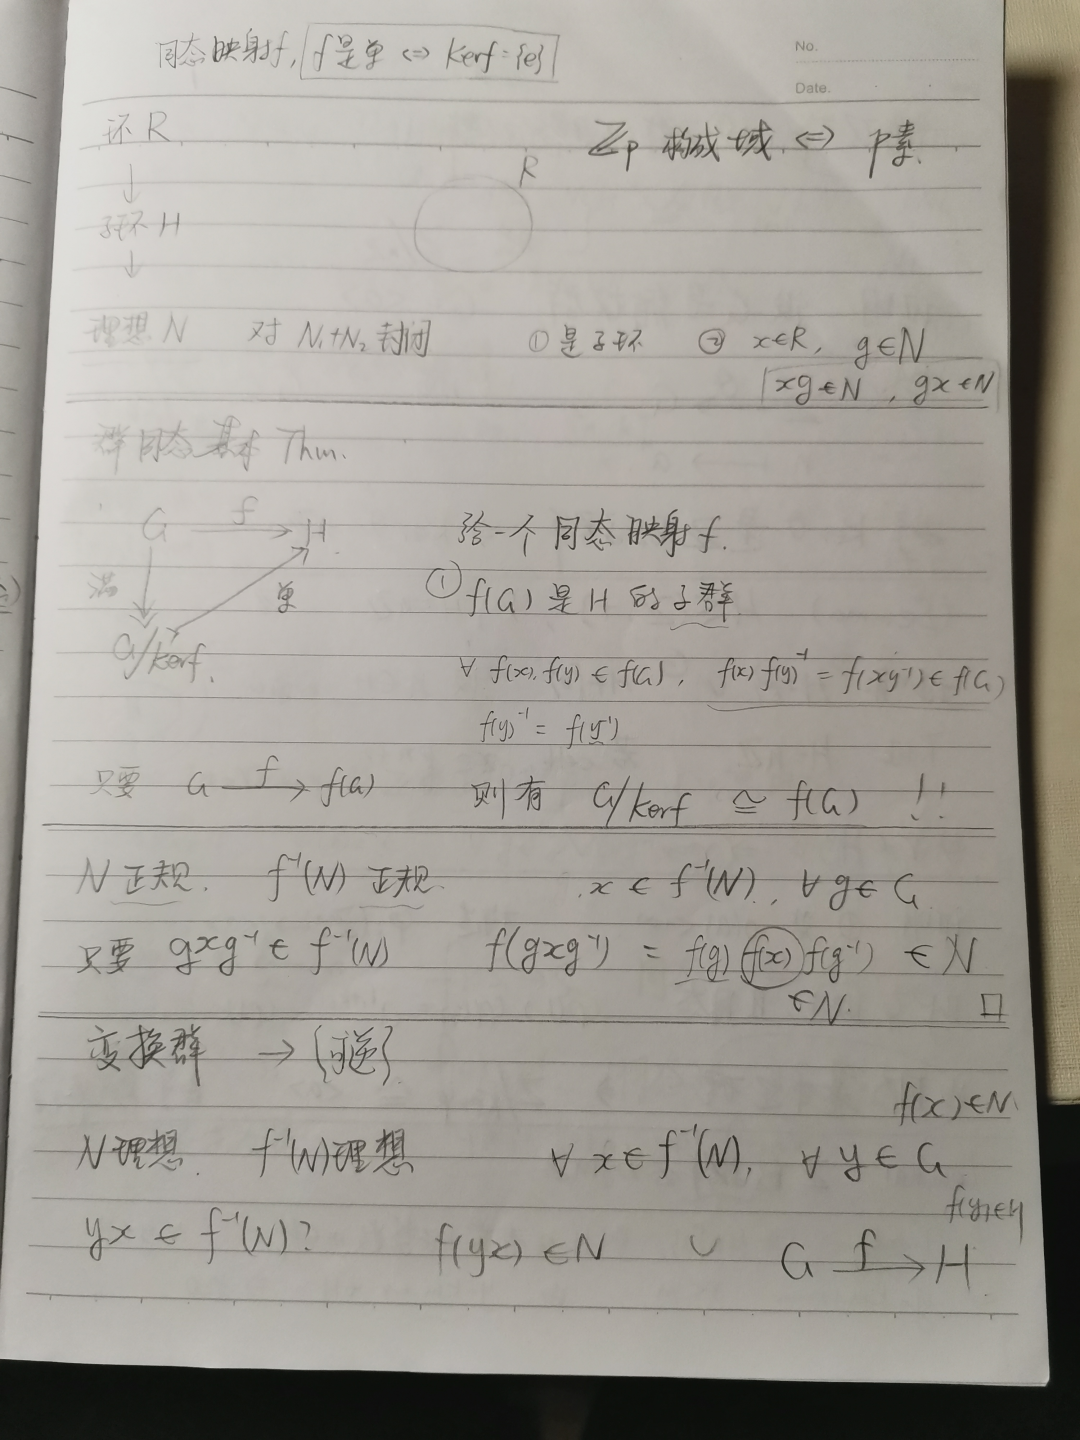 No.
同态映射f, f是单 <=> Kerf={e}
Date.
环 R
Zp 构成域 <=> p素.
R
↓
子环 H
↓
理想 N 对 N₁+N₂ 封闭 ① 是子环 ② x∈R, g∈N
xg∈N , gx∈N
群同态基本 Thm.
G f→ H
给一个同态映射 f.
满 单
① f(G) 是 H 的子群
G/kerf.
∀ f(x), f(y) ∈ f(G), f(x) f(y)⁻¹ = f(xy⁻¹) ∈ f(G)
f(y)⁻¹ = f(y⁻¹)
只要 G f→ f(G) 则有 G/kerf ≅ f(G) !!
N 正规. f⁻¹(N) 正规. x ∈ f⁻¹(N), ∀ g∈ G
只要 gxg⁻¹ ∈ f⁻¹(N) f(gxg⁻¹) = f(g) f(x) f(g⁻¹) ∈ N
∈N. □
变换群 → {可逆}
f(x)∈N
N理想. f⁻¹(N)理想 ∀ x∈ f⁻¹(N), ∀ y ∈ G
f(y)∈H
yx ∈ f⁻¹(N)? f(yx) ∈N G f→ H